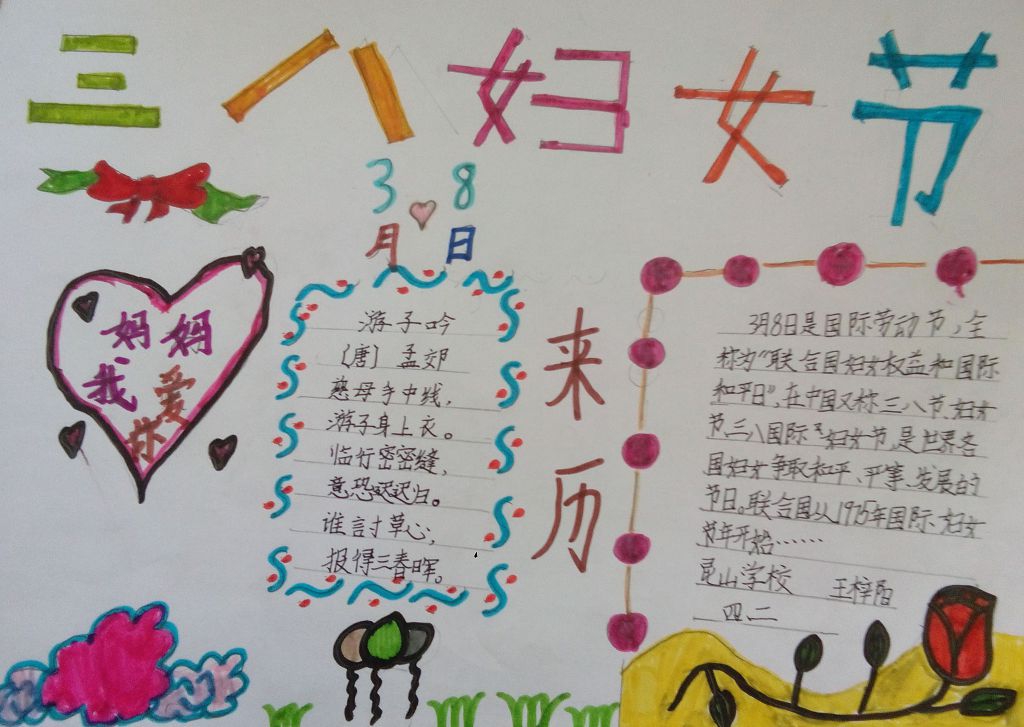 三八妇女节
3 8
月 日
妈妈
我爱
你
游子吟
(唐) 孟郊
慈母手中线,
游子身上衣。
临行密密缝,
意恐迟迟归。
谁討草心,
报得三春晖。
来
历
3月8日是国际劳动节,全
称为“联合国妇女权益和国际
和平日”,在中国又称三八节、妇女
节、三八国际妇女节,是世界各
国妇女争取和平、平事、发展的
节日。联合国从1975年国际妇女
年开始……
昆山学校 王梓
四二